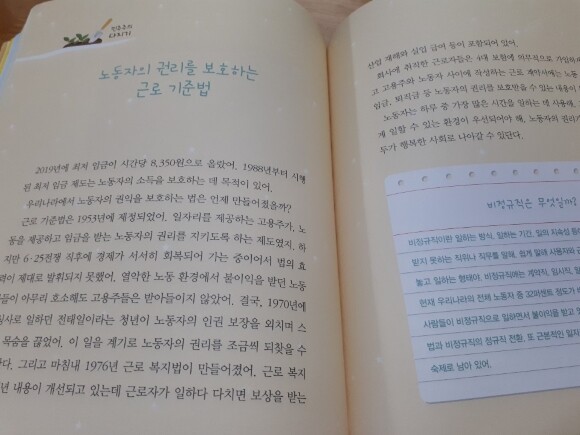 민주주의
다지기
노동자의 권리를 보호하는
근로 기준법
2019년에 최저 임금이 시간당 8,350원으로 올랐어. 1988년부터 시행
된 최저 임금 제도는 노동자의 소득을 보호하는 데 목적이 있어.
우리나라에서 노동자의 권익을 보호하는 법은 언제 만들어졌을까?
근로 기준법은 1953년에 제정되었어. 일자리를 제공하는 고용주가, 노
동을 제공하고 임금을 받는 노동자의 권리를 지키도록 하는 제도였지. 하
지만 6·25전쟁 직후에 경제가 서서히 회복되어 가는 중이어서 법의 효
력이 제대로 발휘되지 못했어. 열악한 노동 환경에서 불이익을 받던 노동
들이 아무리 호소해도 고용주들은 받아들이지 않았어. 결국, 1970년에
일하던 전태일이라는 청년이 노동자의 인권 보장을 외치며 스
목숨을 끊었어. 이 일을 계기로 노동자의 권리를 조금씩 되찾을 수
다. 그리고 마침내 1976년 근로 복지법이 만들어졌어. 근로 복지
년 내용이 개선되고 있는데 근로자가 일하다 다치면 보상을 받는
산업 재해와 실업 급여 등이 포함되어 있어.
회사에 취직한 근로자들은 4대 보험에 의무적으로 가입하
고 고용주와 노동자 사이에 작성하는 근로 계약서에는 노동
임금, 퇴직금 등 노동자의 권리를 보호받을 수 있는 내용이
노동자는 하루 중 가장 많은 시간을 일하는 데 사용해.
게 일할 수 있는 환경이 우선되어야 해. 노동자의 권리가
두가 행복한 사회로 나아갈 수 있단다.
비정규직은 무엇일까?
비정규직이란 일하는 방식, 일하는 기간, 일의 지속성 등
받지 못하는 직위나 직무를 말해. 쉽게 말해 사용자와
놓고 일하는 형태야. 비정규직에는 계약직, 임시직, 일
현재 우리나라의 전체 노동자 중 32퍼센트 정도가 비
사람들이 비정규직으로 일하면서 불이익을 받고 있
법과 비정규직의 정규직 전환, 또 근본적인 일자
숙제로 남아 있어.